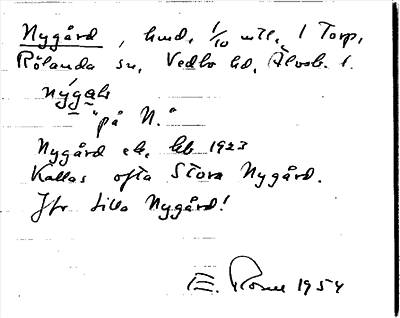 Nygård, hmd, 1/10 mtl, 1 Torp,
Rölanda sn, Vedbo hd, Älvsb. l.
nýgaḷs
"på N."
Nygård ek. kb 1923
Kallas ofta Stora Nygård.
Jfr Lilla Nygård!
E. 1954